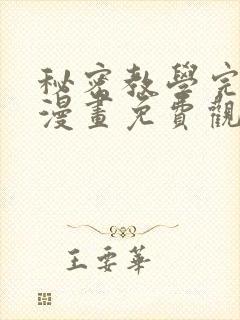 秘密教學完
漫畫免費觀
王要華